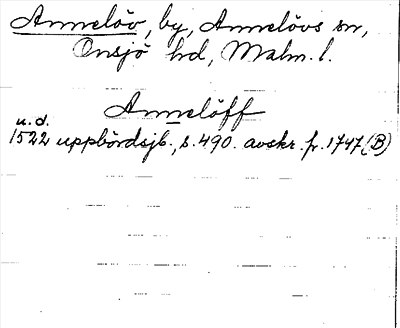 Annelöv, by, Annelövs sn,
Onsjö hd, Malm. l.
Annelöff
u. d.
1522 uppbördsjb., s. 490. avskr. fr. 1747 (B)